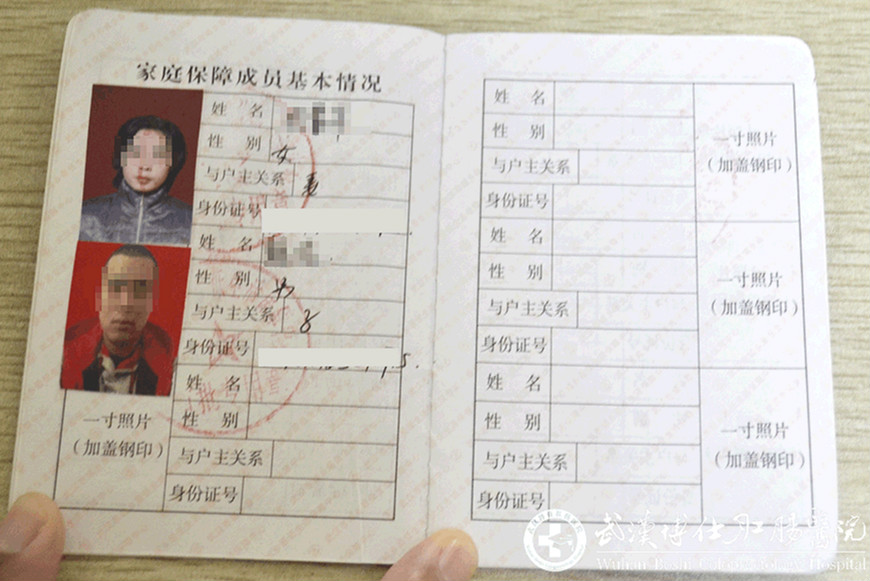 家庭保障成员基本情况
姓 名
性 别 女
与户主关系
身份证号
姓 名
性 别 男
与户主关系 子
身份证号
姓 名
性 别
与户主关系
身份证号
一寸照片
(加盖钢印)
姓 名
性 别
与户主关系
身份证号
一寸照片
(加盖钢印)
姓 名
性 别
与户主关系
身份证号
一寸照片
(加盖钢印)
姓 名
性 别
与户主关系
身份证号
一寸照片
(加盖钢印)
武漢博仕肛腸醫院
Wuhan Boshi Coloproctology Hospital